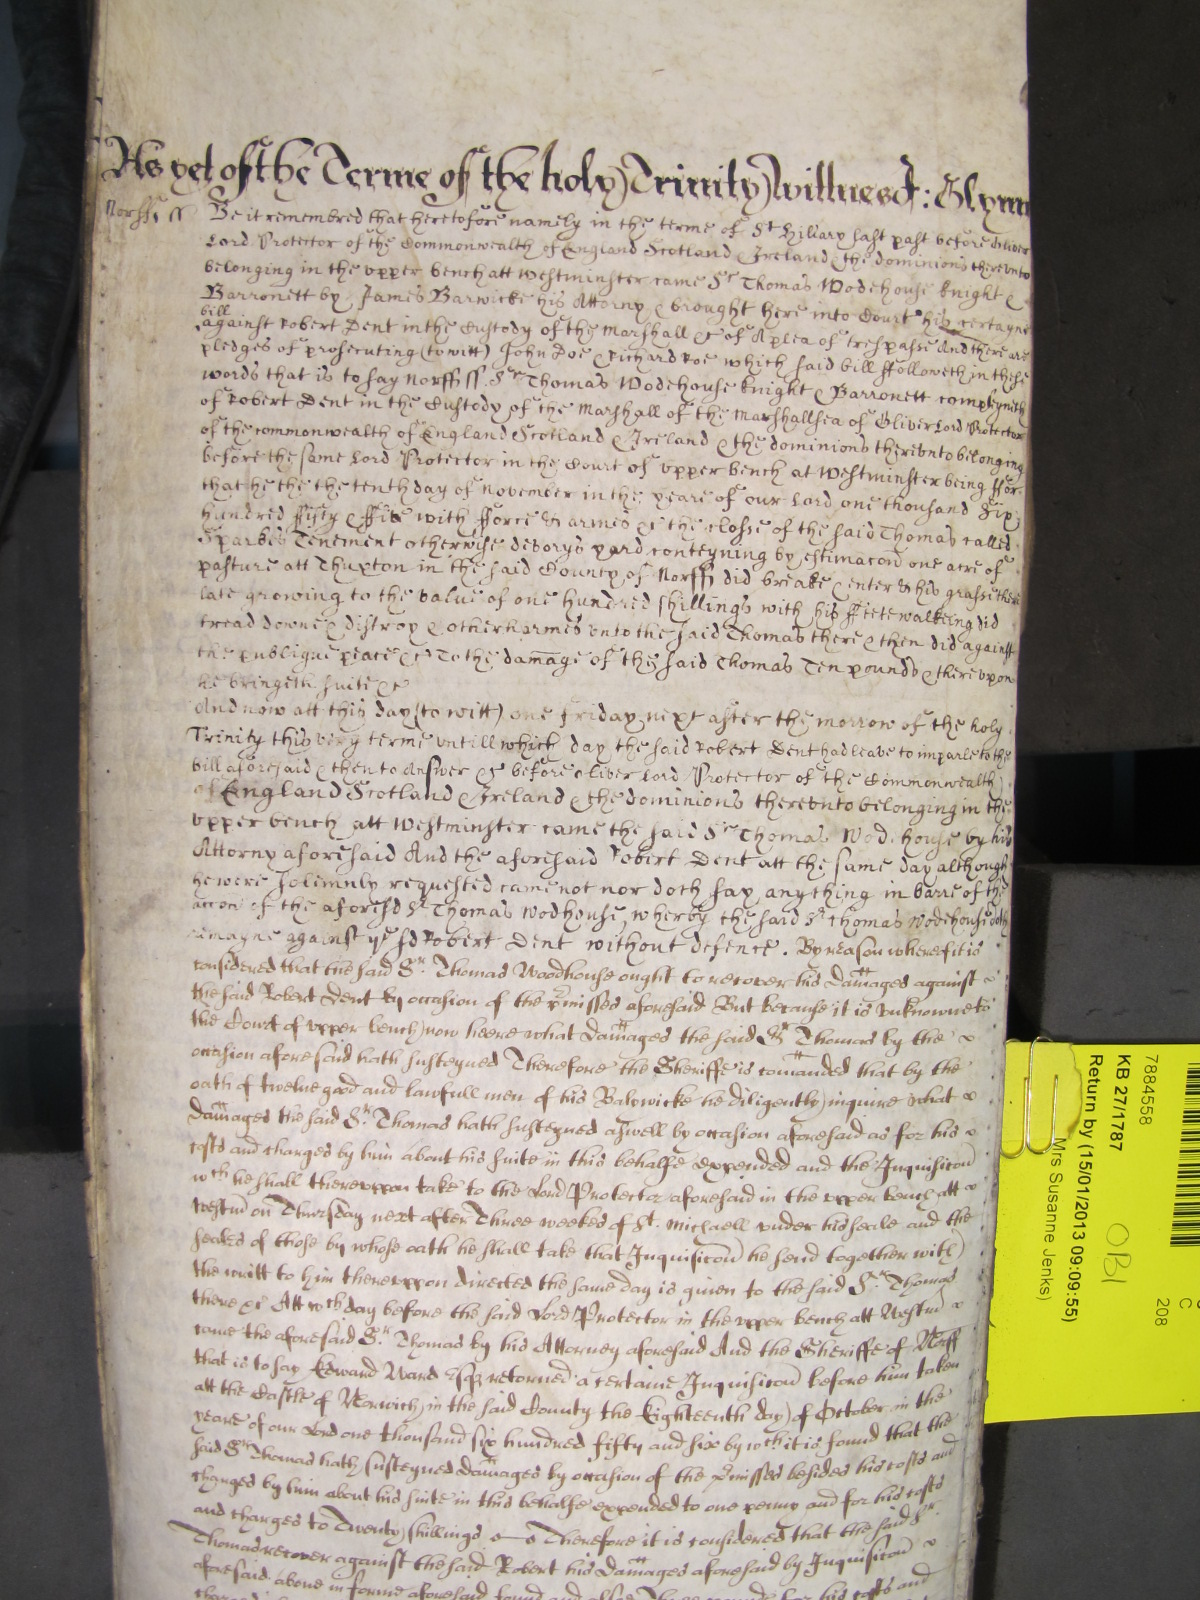 As yet of the Terme of the holy Trinity Wittnes J: Glynn
Norff ss Be it remembred that heretofore namely in the terme of St Hillary last past before Oliver
Lord Protector of the Commonwealth of England Scotland & Ireland & the dominions therevnto
belonging in the vpper bench att Westminster came Sr Thomas Wodehouse Knight &
Barronett by James Barwicke his Attorny & brought here into Court his certayne
bill
against Robert Dent in the Custody of the Marshall &c of A plea of trespasse And there are
pledges of prosecuting (to witt) John Doe & Richard Roe which said bill ffolloweth in these
words that is to say Norff ss Sr Thomas Wodehouse Knight & Barronett compleyneth
of Robert Dent in the Custody of the Marshall of the Marshallsea of Oliver Lord Protector
of the commonwealth of England Scotland & Ireland & the dominions therevnto belonging
before the same Lord Protector in the Court of vpper bench at Westminster being ffor
that he the the tenth day of November in the yeare of our Lord one thousand Six
hundred ffifty & ffive with fforce & armes &c the closse of the said Thomas called
Sparkes Tenement otherwise deborys yard conteyning by estimacon one acre of
pasture att Thuxton in the said County of Norff did breake & enter & his grasse there
late growing to the value of one hundred shillings with his ffeete walkeing did
tread downe & distroy & other harmes vnto the said Thomas there & then did against
the publique peace &c To the damage of the said Thomas Ten pounds & therevpon
he bringeth suite &c
And now att this day (to witt) one Friday next after the morrow of the holy
Trinity this very terme vntill which day the said Robert Dent had leave to imparle to the
bill aforesaid & then to Answer &c before Oliver Lord Protector of the Commonwealth
of England Scotland & Ireland & the dominions therevnto belonging in the
vpper bench att Westminster came the said Sr Thomas Wodehouse by his
Attorny aforesaid And the aforesaid Robert Dent att the same day although
he were solemnly requested came not nor doth say anything in barre of the
accon of the aforesd Sr Thomas Wodhouse wherby the said Sr Thomas Wodehouse doth
remayne against ye sd Robert Dent without defence. By reason whereof it is
considered that the said Sr. Thomas Woodhouse ought to recover his Damages against
the said Robert Dent by occasion of the pmisses aforesaid But because it is vnknowne to
the Court of vpper bench now heere what damages the said Sr Thomas by the
occasion aforesaid hath susteyned Therefore the Sheriffe is comanded that by the
oath of twelve good and lawfull men of his Balywicke he diligently inquire what
Damages the said Sr. Thomas hath susteyned aswell by occasion aforesaid as for his
costs and charges by him about his suite in this behalfe expended and the Inquisicon
wch he shall therevppon take to the Lord Protector aforesaid in the vpper bench att
Westm on Thursday next after Three weekes of St. Michaell vnder his seale and the
seales of those by whose oath he shall take that Inquisicon he send together with
the writt to him therevppon directed the same day is given to the said Sr. Thomas
there &c Att wch day before the said Lord Protector in the vpper bench att Westm
came the aforesaid Sr. Thomas by his Attorney aforesaid And the Sheriffe of Norff
that is to say Edward Ward Esqr retorned a certaine Inquisicon before him taken
att the Castle of Norwich in the said County the Eighteenth day of October in the
yeare of our Lord one thousand six hundred fifty and six by wch it is found that the
said Sr Thomas hath susteyned damages by occasion of the pmisses besides his costs and
charges by him about his suite in this behalfe expended to one penny and for his costs
and charges to Twenty shillings Therefore it is considered that the said Sr.
Thomas recover against the said Robert his Damages aforesaid by Inquisicon
aforesaid above in forme aforesaid found and also for his costs and
7884558
KB 27/1787
Return by (15/01/2013 09:09:55)
Mrs Susanne Jenks)
OBI
C
208